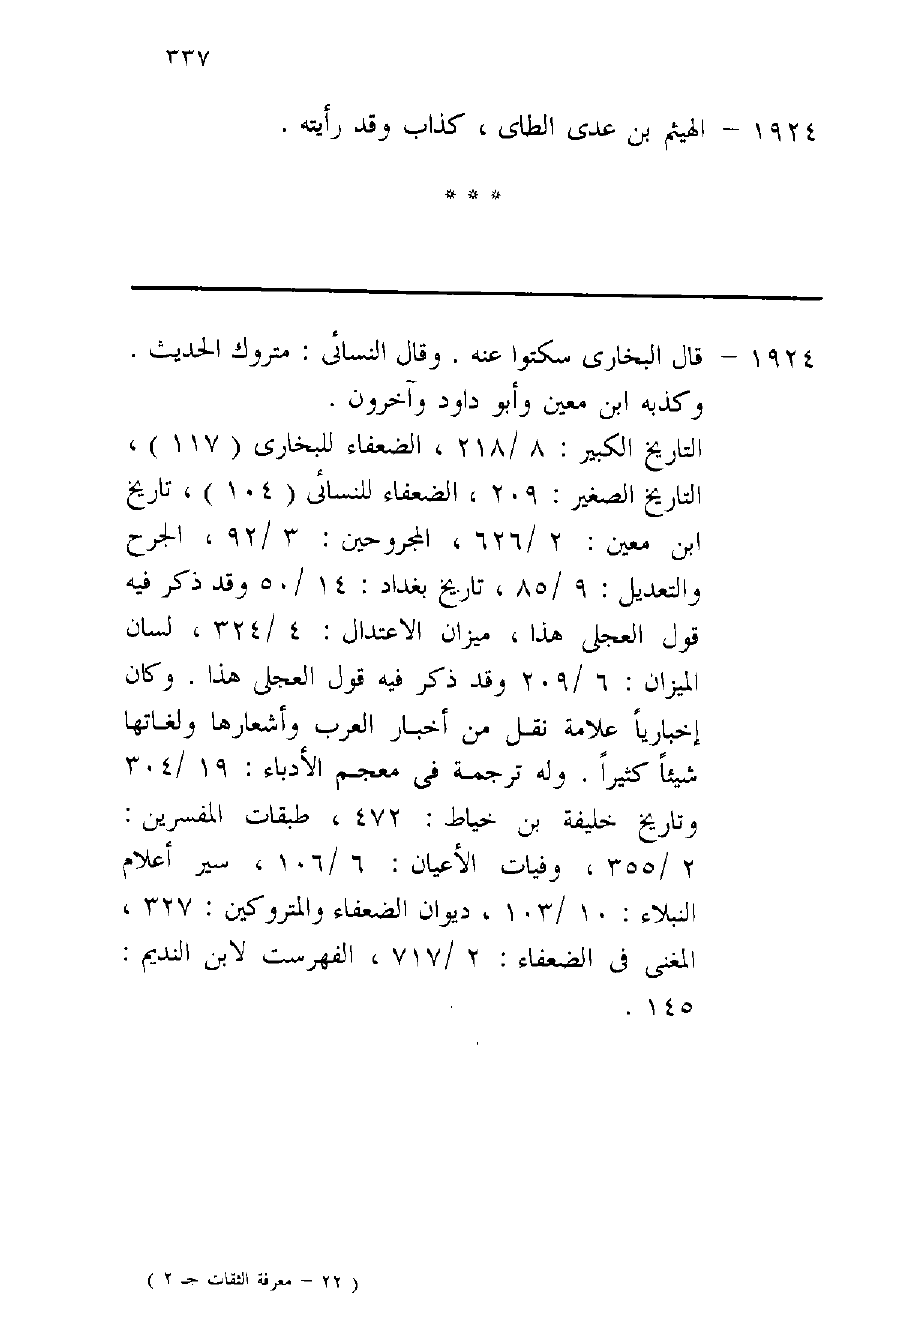 ٣٣٧
١٩٢٤ – الهيثم بن عدى الطاى ، كذاب وقد رأيته .
* * *
١٩٢٤ – قال البخارى سكتوا عنه . وقال النسائى : متروك الحديث .
وكذبه ابن معين وأبو داود وآخرون .
التاريخ الكبير : ٨ /٢١٨ ، الضعفاء للبخارى ( ١١٧ ) ،
التاريخ الصغير : ٢٠٩ ، الضعفاء للنسائى ( ١٠٤ ) ، تاريخ
ابن معين : ٢ /٦٢٦ ، المجروحين : ٣ /٩٢ ، الجرح
والتعديل : ٩ /٨٥ ، تاريخ بغداد : ١٤ /٥٠ وقد ذكر فيه
قول العجلى هذا ، ميزان الاعتدال : ٤ /٣٢٤ ، لسان
الميزان : ٦ /٢٠٩ وقد ذكر فيه قول العجلى هذا . وكان
إخبارياً علامة نقل من أخبار العرب وأشعارها ولغاتها
شيئاً كثيراً . وله ترجمة فى معجم الأدباء : ١٩ /٣٠٤
وتاريخ خليفة بن خياط : ٤٧٢ ، طبقات المفسرين :
٢ /٣٥٥ ، وفيات الأعيان : ٦ /١٠٦ ، سير أعلام
النبلاء : ١٠ /١٠٣ ، ديوان الضعفاء والمتروكين : ٣٢٧ ،
المغنى فى الضعفاء : ٢ /٧١٧ ، الفهرست لابن النديم :
١٤٥ .
( ٢٢ – معرفة الثقات جـ ٢ )